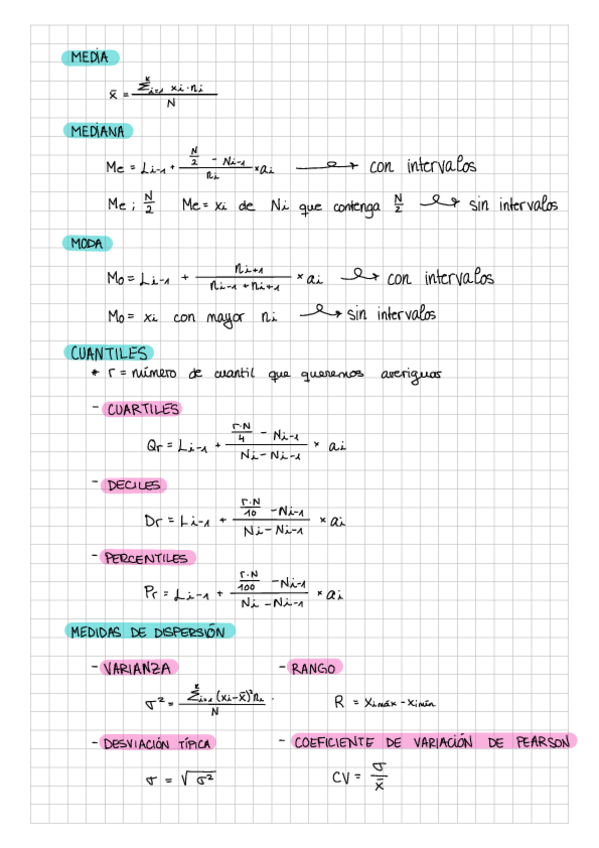 MEDIA
x̄ = Σᵏᵢ₌₁ xi·ni / N
MEDIANA
Me = Li-1 + (N/2 - Ni-1) / ni × ai → con intervalos
Me ; N/2 Me = xi de Ni que contenga N/2 → sin intervalos
MODA
Mo = Li-1 + ni+1 / (ni-1 + ni+1) × ai → con intervalos
Mo = xi con mayor ni → sin intervalos
CUANTILES
* r = número de cuantil que queremos averiguar
- CUARTILES
Qr = Li-1 + (r·N/4 - Ni-1) / (Ni - Ni-1) × ai
- DECILES
Dr = Li-1 + (r·N/10 - Ni-1) / (Ni - Ni-1) × ai
- PERCENTILES
Pr = Li-1 + (r·N/100 - Ni-1) / (Ni - Ni-1) × ai
MEDIDAS DE DISPERSIÓN
- VARIANZA
σ² = Σᵏᵢ₌₁ (xi - x̄)² ni / N
- RANGO
R = xi máx - xi mín
- DESVIACIÓN TÍPICA
σ = √σ²
- COEFICIENTE DE VARIACIÓN DE PEARSON
CV = σ / x̄